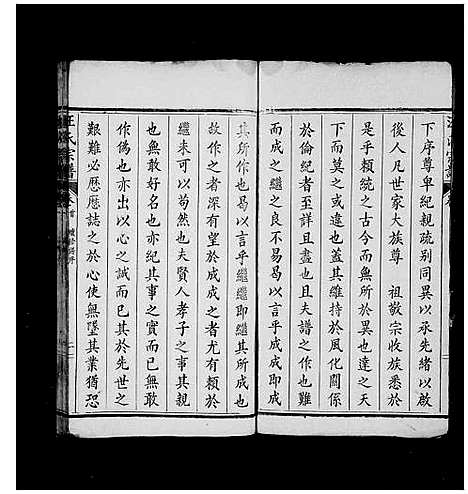 下序尊卑紀親疏別同異以承先緒以啟
後人凡世家大族尊 祖敬宗收族悉於
是乎賴統之古今而無所於異也達之天
下而莫之或違也蓋其維持於風化關係
於倫紀者至詳且盡也且夫譜之作也難
而成之繼之良不易易以言乎成成即成
其所繼也以言乎繼繼即繼其所成也
故作之者深有望於成成之者尤有賴於
繼來可以苟然也夫賢人孝子之事其親
也無敢好名也亦紀其事之實而已無敢
作偽也亦出以心之誠而已其於先世之
艱難必歷歷誌之於心使無墜其業猶恐
汪氏宗譜 卷首